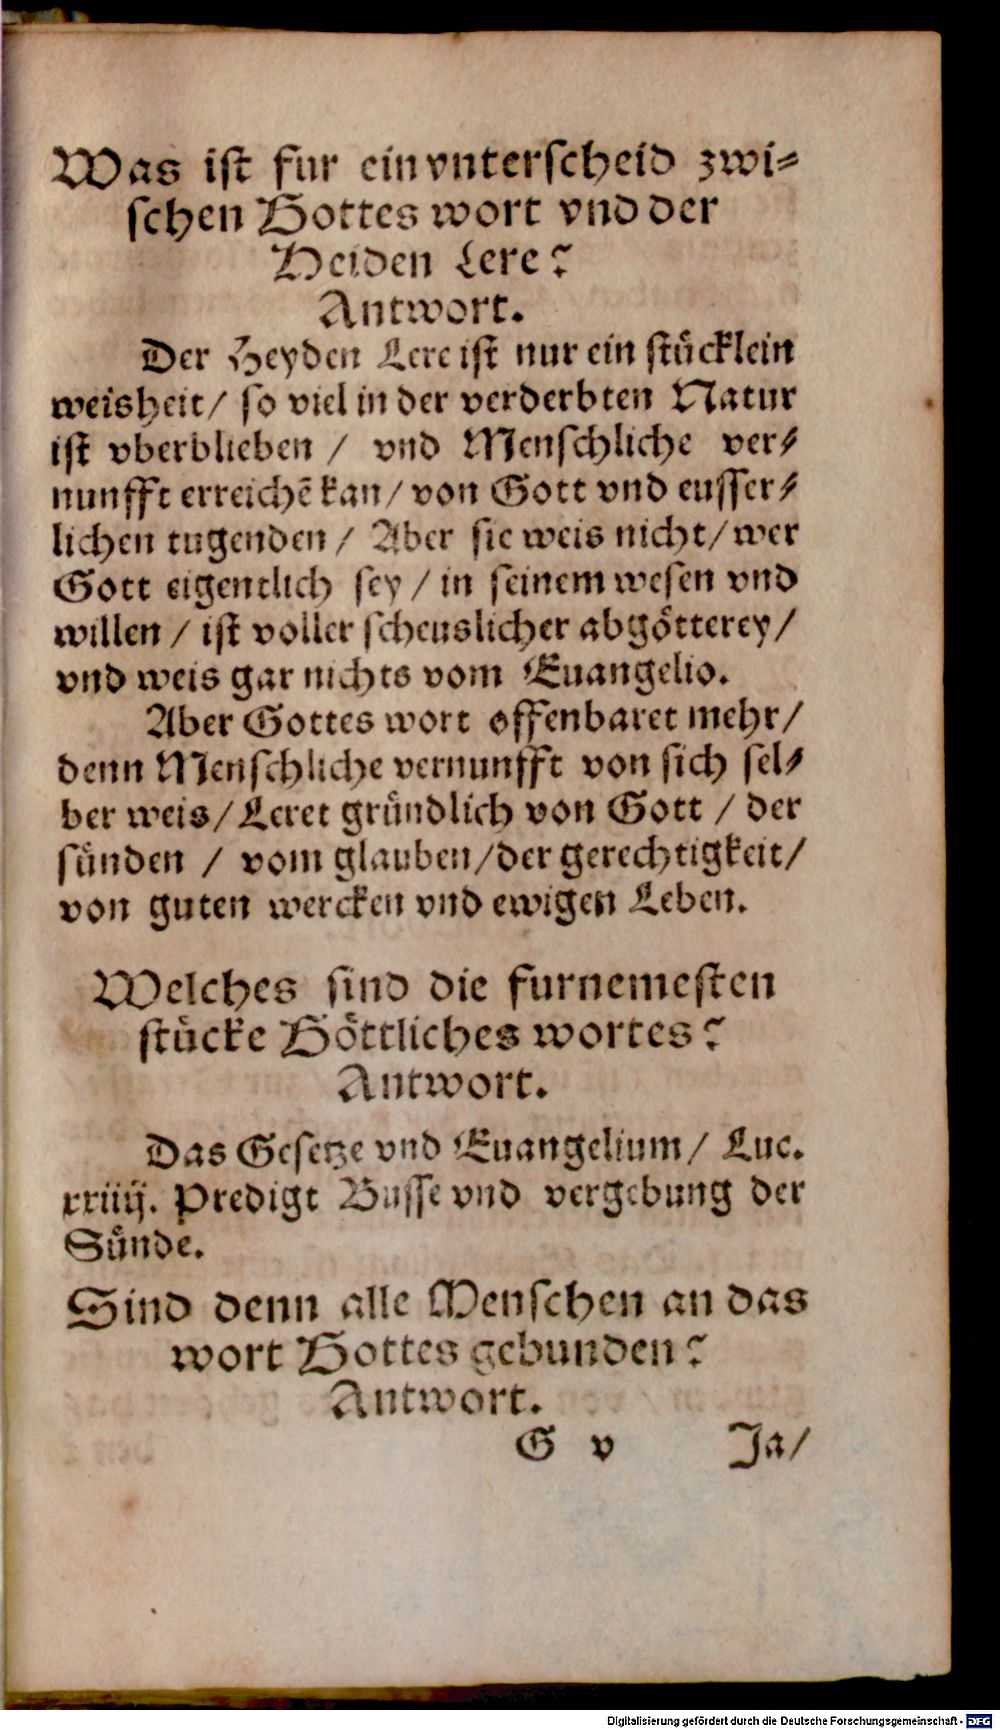 Was ist fur ein vnterscheid zwi-
schen Gottes wort vnd der
Heiden Lere?
Antwort.
Der Heyden Lere ist nur ein stücklein
weisheit/ so viel in der verderbten Natur
ist vberblieben / vnd Menschliche ver-
nunfft erreichē kan/ von Gott vnd eusser-
lichen tugenden / Aber sie weis nicht/ wer
Gott eigentlich sey / in seinem wesen vnd
willen / ist voller scheuslicher abgötterey/
vnd weis gar nichts vom Euangelio.
Aber Gottes wort offenbaret mehr/
denn Menschliche vernunfft von sich sel-
ber weis/ Leret gründlich von Gott / der
sünden / vom glauben/ der gerechtigkeit/
von guten wercken vnd ewigen Leben.
Welches sind die furnemesten
stücke Göttliches wortes?
Antwort.
Das Gesetze vnd Euangelium/ Luc.
xxiiij. Predigt Busse vnd vergebung der
Sünde.
Sind denn alle Menschen an das
wort Gottes gebunden?
Antwort.
G v Ja/
Digitalisierung gefördert durch die Deutsche Forschungsgemeinschaft - DFG